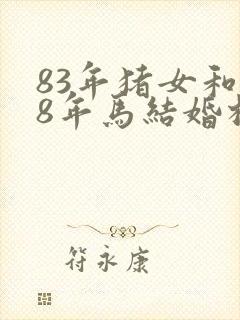 83年猪女和
8年馬結婚
符永康